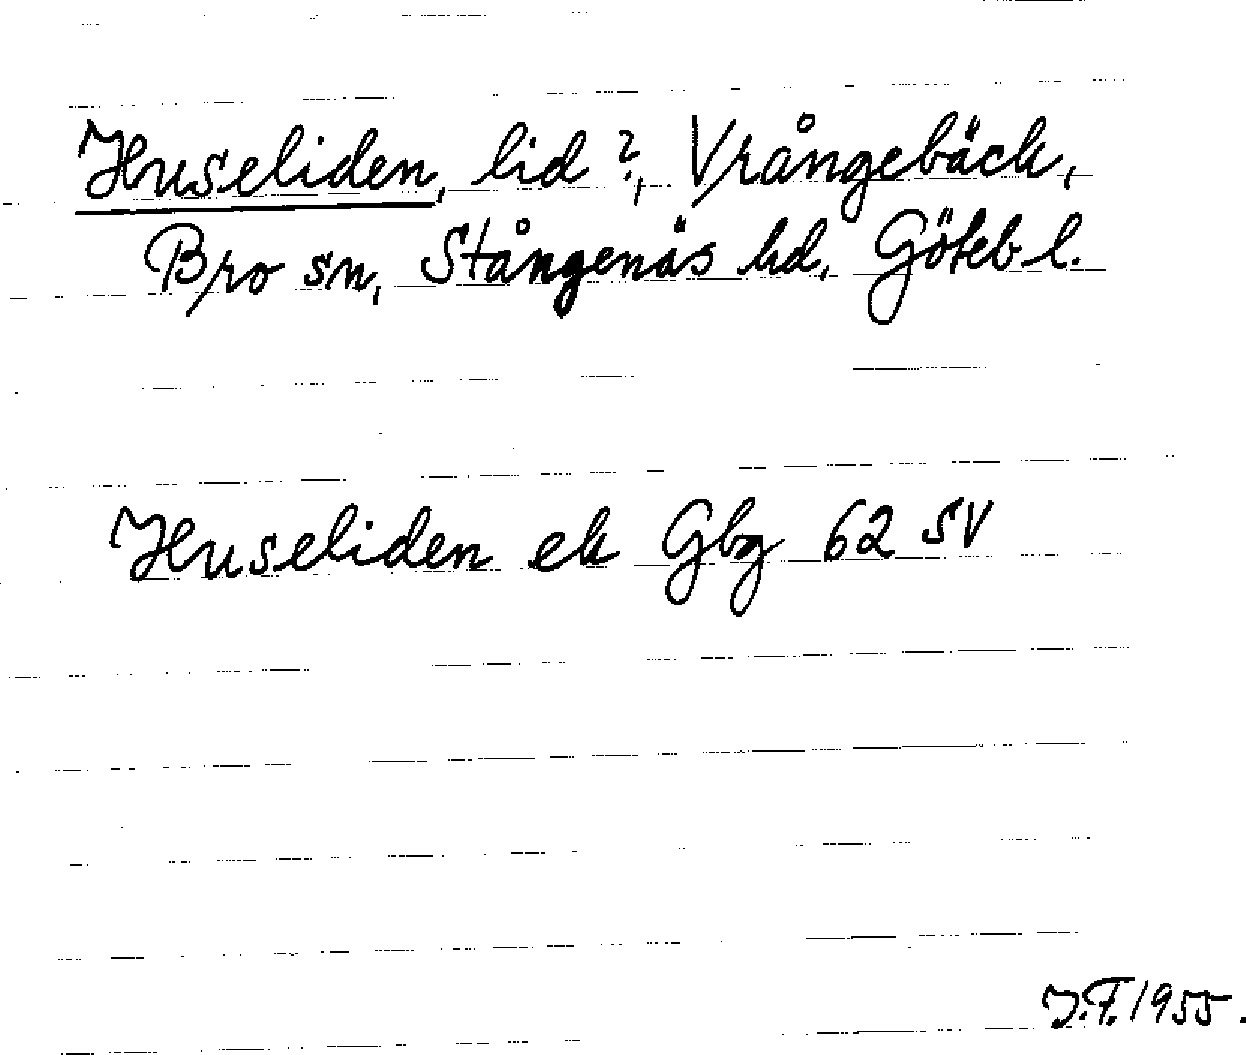 Huseliden, lid?, Vrångebäck,
Bro sn, Stångenäs hd, Göteb. l.
Huseliden ek Gbg 62 SV
J.F. 1955.